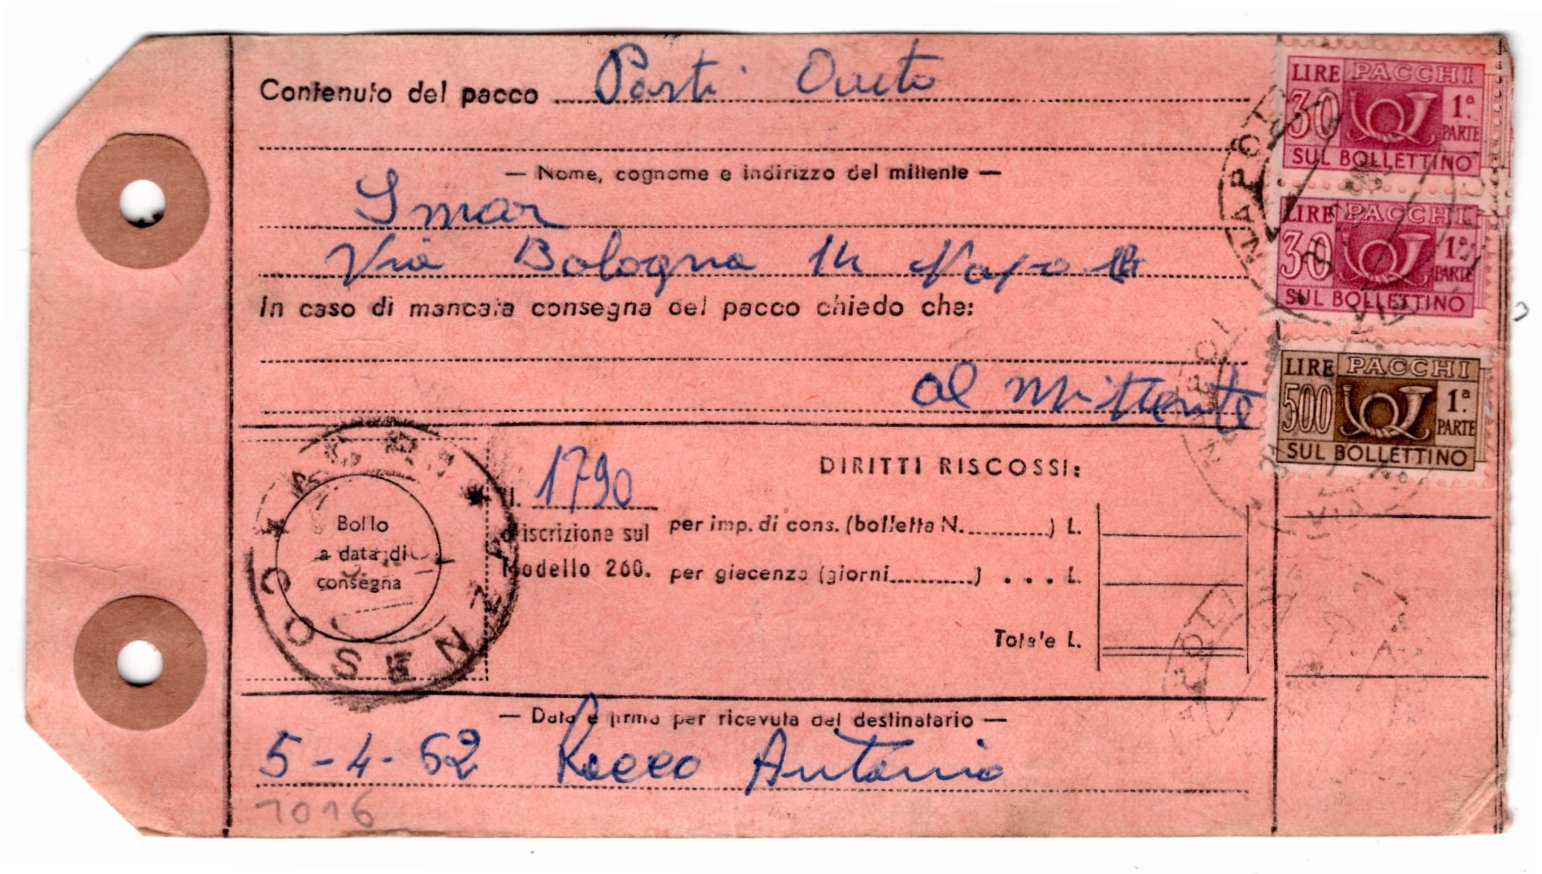 Contenuto del pacco Parti Auto
— Nome, cognome e indirizzo del mittente —
Imar
Via Bologna 14 Napoli
In caso di mancata consegna del pacco chiedo che:
al Mittente
LIRE PACCHI
30 1ª PARTE
SUL BOLLETTINO
LIRE PACCHI
30 1ª PARTE
SUL BOLLETTINO
LIRE PACCHI
500 1ª PARTE
SUL BOLLETTINO
NAPOLI
NAPOLI
NAPOLI
ACRI * COSENZA
Bollo
a data di
consegna
N. 1790
d'iscrizione sul
Modello 260.
DIRITTI RISCOSSI:
per imp. di cons. (bolletta N..........) L.
per giacenza (giorni..........) . . . L.
Totale L.
— Data e firma per ricevuta del destinatario —
5-4-62 Rocco Antonio
1016